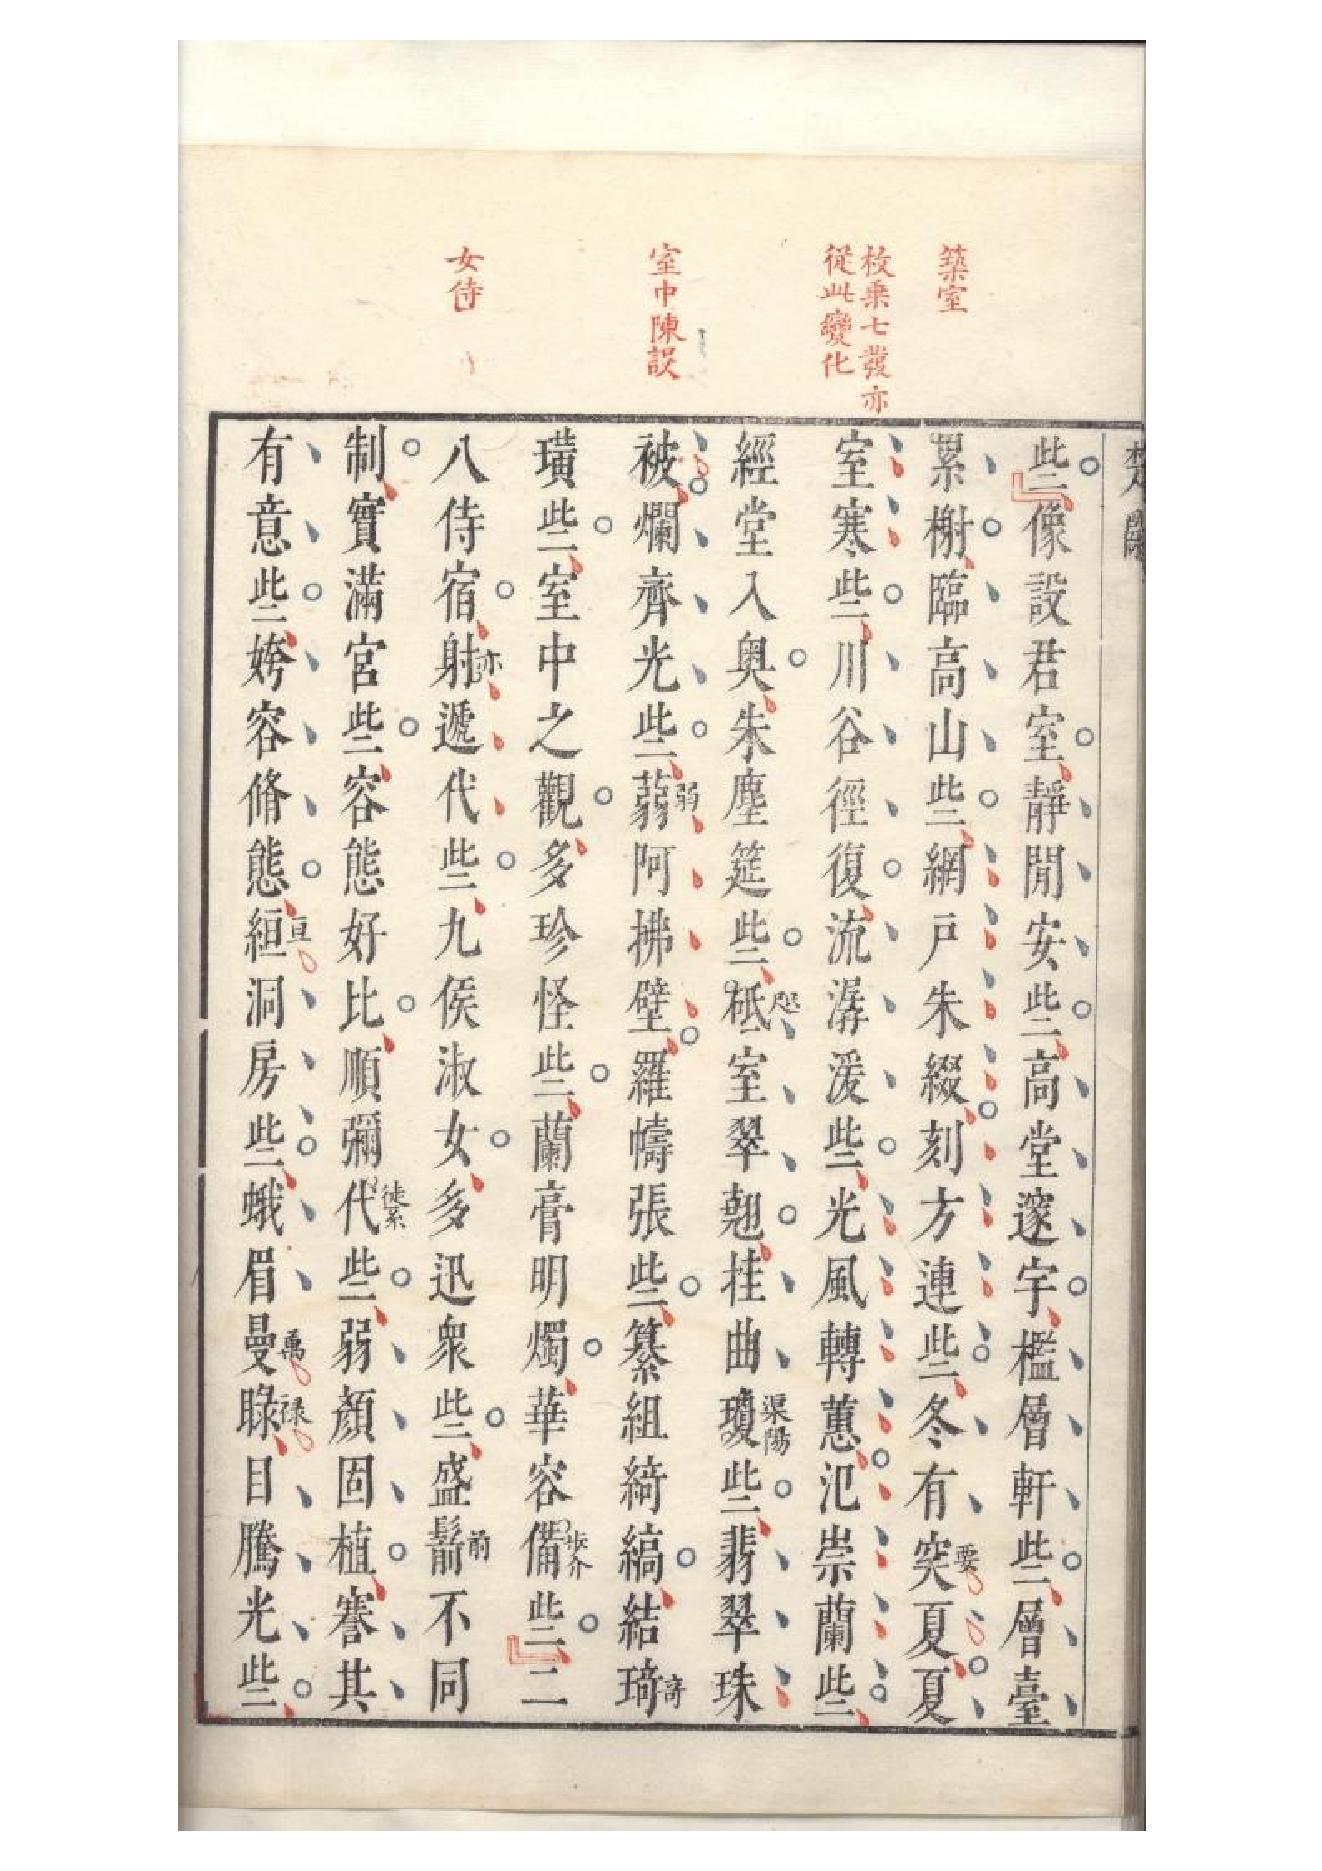 築室
枚乗七發亦
從此變化
室中陳設
女侍
些像設君室靜閒安些高堂邃宇檻層軒些層臺
累榭臨高山些網戸朱綴刻方連些冬有突要夏夏
室寒些川谷徑復流潺湲些光風轉蕙氾崇蘭些
經堂入奥朱塵筵些砥室翠翹挂曲瓊渠陽些翡翠珠
被爛齊光些蒻弱阿拂壁羅幬張些纂組綺縞結琦奇
璜些室中之觀多珍怪些蘭膏明燭華容備些二
八侍宿射亦遞代些九侯淑女多迅衆些盛鬋前不同
制實滿宮些容態好比順彌代些弱顏固植謇其
有意些姱容脩態絙亘洞房些蛾眉曼睩禄目騰光些